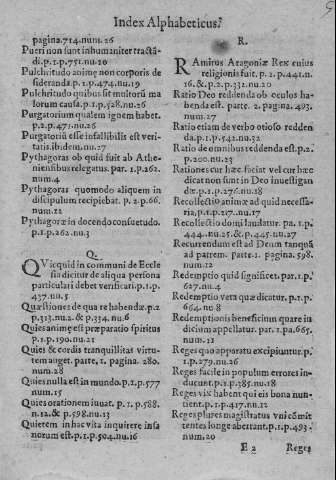 Index Alphabeticus.
pagina.714.num.26
Pueri non sunt inhumaniter tractā-
di.p.1.p.751.nu.20
Pulchritudo animę non corporis de
sideranda.p.1.p.474.nu.19
Pulchritudo quibus sit multorū ma
lorum causa.p.1.p.528.nu.26
Purgatorium qualem ignem habet.
p.2.p.471.nu.26
Purgatoriū esse infallibilis est veri-
tatis.ibidem.nu.27
Pythagoras ob quid fuit ab Athe-
niensibus relegatus. par. 1.p.262.
num.4
Pythagoras quomodo aliquem in
discipulum recipiebat. p. 2.p.66.
num.12
Pythagoræ in docendo consuetudo.
p.1.p.262.nu.3
Q.
QVicquid in communi de Eccle
sia dicitur de aliqua persona
particulari debet verificari.p.1.p.
437.nu.5
Quæstiones de qua re habendæ.p.2
p.313.nu.2. & p.334. nu.6
Quies animę est præparatio spiritus
p.1.p.190.nu.21
Quies & cordis tranquillitas virtu-
tem auget. parte, 1. pagina. 280.
num.28
Quies nulla est in mundo.p.2.p.577
num.15
Quies orationem iuuat. p. 1.p.588.
n.12.& p.598.nu.13
Quietem in hac vita inquirere insa
norum est.p.1.p.504.nu.16
R.
RAmirus Aragoniæ Rex cuius
religionis fuit. p. 2. p.441.n.
16.&.p.2.p.332.nu.20
Ratio Deo reddenda ob oculos ha-
benda est. parte. 2. pagina. 493.
num.27
Ratio etiam de verbo otioso redden
da.p.1.p.542.nu.32
Ratio de omnibus reddenda est.p.2.
p.200.nu.23
Rationes cur hæc faciat vel cur hæc
dicat non sunt in Deo inuestigan
dæ.p.1.p.276.nu.18
Recollectio animæ ad quid necessa-
ria.p.1.p.217.nu.17
Recollectio domi laudatur. pa. 1.p.
444.nu.25.& p.445.nu.27
Recurrendum est ad Deum tanquā
ad patrem. parte.1. pagina. 598.
num.12
Redemptio quid significet. par.1.p.
627.nu.4
Redemptio vera quæ dicatur. p.1.p.
664.nu.8
Redemptionis beneficium quare in
dicium appellatur. par.1.pa.665.
num.11
Reges quo apparatu excipiuntur.p.
1.p.279.nu.26
Reges facile in populum errores in-
ducunt.p.1.p.385.nu.18
Reges vix habent qui eis bona nun-
tient.p.1.p.417.nu.12
Reges plures magistratus vni cōmit
tentes longe aberrant.p.1.p.493.
num.20
E 2
Reges